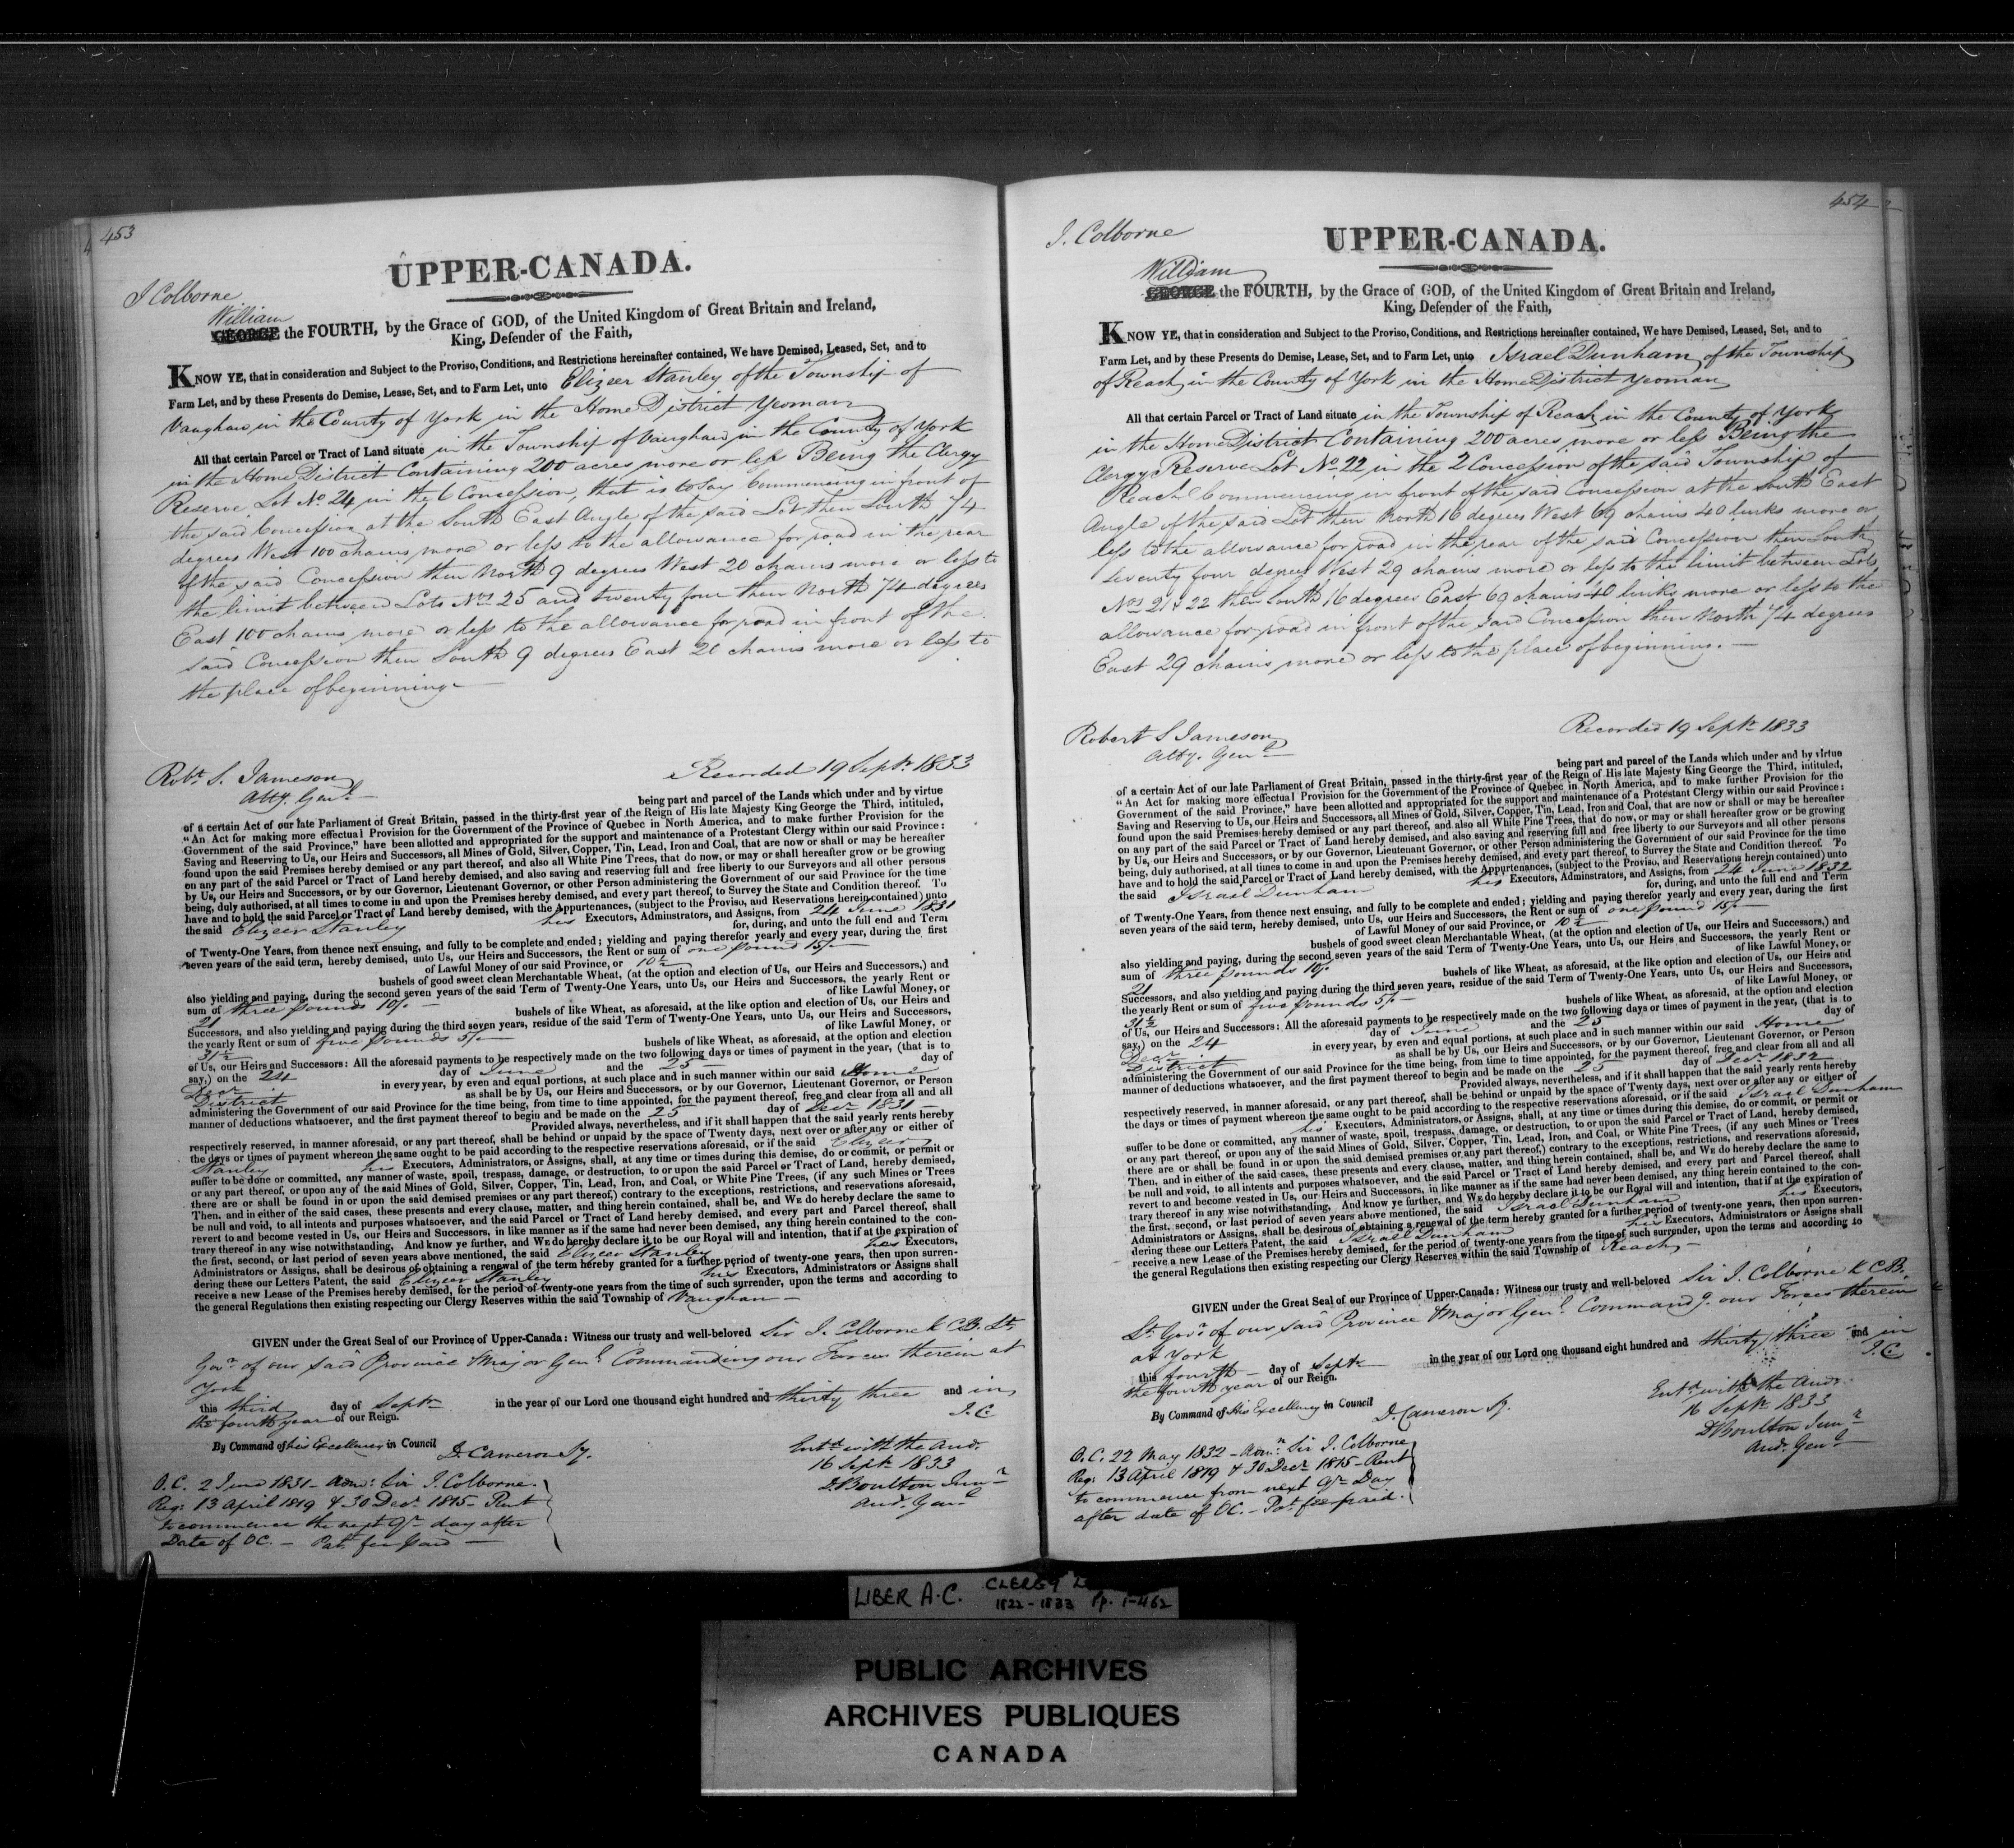 453
UPPER-CANADA.
J Colborne
William
GEORGE the FOURTH, by the Grace of GOD, of the United Kingdom of Great Britain and Ireland,
King, Defender of the Faith,
KNOW YE, that in consideration and Subject to the Proviso, Conditions, and Restrictions hereinafter contained, We have Demised, Leased, Set, and to
Farm Let, and by these Presents do Demise, Lease, Set, and to Farm Let, unto Elizeer Stanley of the Township of
Vaughan in the County of York in the Home District Yeoman
All that certain Parcel or Tract of Land situate in the Township of Vaughan in the County of York
in the Home District Containing 200 acres more or less Being the Clergy
Reserve Lot No. 24 in the 6 Concession, that is to say Commencing in front of
the said Concession at the South East Angle of the said Lot then South 74
degrees West 100 chains more or less to the allowance for road in the rear
of the said Concession then North 9 degrees West 20 chains more or less to
the limit between Lots Nos 25 and twenty four then North 74 degrees
East 100 chains more or less to the allowance for road in front of the
said Concession then South 9 degrees East 20 chains more or less to
the place of beginning
Robt S. Jameson
Atty. Genl.
Recorded 19 Septr. 1833
being part and parcel of the Lands which under and by virtue
of a certain Act of our late Parliament of Great Britain, passed in the thirty-first year of the Reign of His late Majesty King George the Third, intituled,
"An Act for making more effectual Provision for the Government of the Province of Quebec in North America, and to make further Provision for the
Government of the said Province," have been allotted and appropriated for the support and maintenance of a Protestant Clergy within our said Province:
Saving and Reserving to Us, our Heirs and Successors, all Mines of Gold, Silver, Copper, Tin, Lead, Iron and Coal, that are now or shall or may be hereafter
found upon the said Premises hereby demised or any part thereof, and also all White Pine Trees, that do now, or may or shall hereafter grow or be growing
on any part of the said Parcel or Tract of Land hereby demised, and also saving and reserving full and free liberty to our Surveyors and all other persons
by Us, our Heirs and Successors, or by our Governor, Lieutenant Governor, or other Person administering the Government of our said Province for the time
being, duly authorised, at all times to come in and upon the Premises hereby demised, and every part thereof, to Survey the State and Condition thereof. To
have and to hold the said Parcel or Tract of Land hereby demised, with the Appurtenances, (subject to the Proviso, and Reservations herein contained) unto
the said Elizeer Stanley his Executors, Adminstrators, and Assigns, from 24 June 1831
for, during, and unto the full end and Term
of Twenty-One Years, from thence next ensuing, and fully to be complete and ended; yielding and paying therefor yearly and every year, during the first
seven years of the said term, hereby demised, unto Us, our Heirs and Successors, the Rent or sum of one pound 15/-
of Lawful Money of our said Province, or 10½
bushels of good sweet clean Merchantable Wheat, (at the option and election of Us, our Heirs and Successors,) and
also yielding and paying, during the second seven years of the said Term of Twenty-One Years, unto Us, our Heirs and Successors, the yearly Rent or
sum of three pounds 10/- of like Lawful Money, or
21 bushels of like Wheat, as aforesaid, at the like option and election of Us, our Heirs and
Successors, and also yielding and paying during the third seven years, residue of the said Term of Twenty-One Years, unto Us, our Heirs and Successors,
the yearly Rent or sum of five pounds 5/- of like Lawful Money, or
31½ bushels of like Wheat, as aforesaid, at the option and election
of Us, our Heirs and Successors: All the aforesaid payments to be respectively made on the two following days or times of payment in the year, (that is to
say,) on the 24 day of June and the 25 day of
Decr in every year, by even and equal portions, at such place and in such manner within our said Home
District as shall be by Us, our Heirs and Successors, or by our Governor, Lieutenant Governor, or Person
administering the Government of our said Province for the time being, from time to time appointed, for the payment thereof, free and clear from all and all
manner of deductions whatsoever, and the first payment thereof to begin and be made on the 25 day of Decr 1831
Provided always, nevertheless, and if it shall happen that the said yearly rents hereby
respectively reserved, in manner aforesaid, or any part thereof, shall be behind or unpaid by the space of Twenty days, next over or after any or either of
the days or times of payment whereon the same ought to be paid according to the respective reservations aforesaid, or if the said Elizeer
Stanley his Executors, Administrators, or Assigns, shall, at any time or times during this demise, do or commit, or permit or
suffer to be done or committed, any manner of waste, spoil, trespass, damage, or destruction, to or upon the said Parcel or Tract of Land, hereby demised,
or any part thereof, or upon any of the said Mines of Gold, Silver, Copper, Tin, Lead, Iron, and Coal, or White Pine Trees, (if any such Mines or Trees
there are or shall be found in or upon the said demised premises or any part thereof,) contrary to the exceptions, restrictions, and reservations aforesaid,
Then, and in either of the said cases, these presents and every clause, matter, and thing herein contained, shall be, and WE do hereby declare the same to
be null and void, to all intents and purposes whatsoever, and the said Parcel or Tract of Land hereby demised, and every part and Parcel thereof, shall
revert to and become vested in Us, our Heirs and Successors, in like manner as if the same had never been demised, any thing herein contained to the con-
trary thereof in any wise notwithstanding. And know ye further, and WE do hereby declare it to be our Royal will and intention, that if at the expiration of
the first, second, or last period of seven years above mentioned, the said Elizeer Stanley his Executors,
Administrators or Assigns, shall be desirous of obtaining a renewal of the term hereby granted for a further period of twenty-one years, then upon surren-
dering these our Letters Patent, the said Elizeer Stanley his Executors, Administrators or Assigns shall
receive a new Lease of the Premises hereby demised, for the period of twenty-one years from the time of such surrender, upon the terms and according to
the general Regulations then existing respecting our Clergy Reserves within the said Township of Vaughan
GIVEN under the Great Seal of our Province of Upper-Canada: Witness our trusty and well-beloved Sir J. Colborne K C.B. Lt.
Govr. of our said Province & Major Genl. Commanding our Forces therein at
York
this third day of Septr in the year of our Lord one thousand eight hundred and thirty three and in
the fourth year of our Reign. J.C.
By Command of his Excellency in Council D. Cameron Sy.
Entd with the Aud.
16 Septr. 1833
D Boulton Junr
Aud. Genl
O.C. 2 June 1831 - Admn: Sir J. Colborne
Reg: 13 April 1819 & 30 Decr. 1815 - Rent
to commence the next Qr. day after
Date of O.C. - Pat. fee paid
454
J. Colborne
UPPER-CANADA.
William
GEORGE the FOURTH, by the Grace of GOD, of the United Kingdom of Great Britain and Ireland,
King, Defender of the Faith,
KNOW YE, that in consideration and Subject to the Proviso, Conditions, and Restrictions hereinafter contained, We have Demised, Leased, Set, and to
Farm Let, and by these Presents do Demise, Lease, Set, and to Farm Let, unto Israel Dunham of the Township
of Reach in the County of York in the Home District Yeoman
All that certain Parcel or Tract of Land situate in the Township of Reach in the County of York
in the Home District Containing 200 acres more or less Being the
Clergy Reserve Lot No. 22 in the 2 Concession of the said Township of
Reach Commencing in front of the said Concession at the South East
Angle of the said Lot then North 16 degrees West 69 chains 40 links more or
less to the allowance for road in the rear of the said Concession then South
seventy four degrees West 29 chains more or less to the limit between Lots
Nos 21 & 22 then South 16 degrees East 69 chains 40 links more or less to the
allowance for road in front of the said Concession then North 74 degrees
East 29 chains more or less to the place of beginning.
Robert S Jameson
Atty. Genl
Recorded 19 Septr 1833
being part and parcel of the Lands which under and by virtue
of a certain Act of our late Parliament of Great Britain, passed in the thirty-first year of the Reign of His late Majesty King George the Third, intituled,
"An Act for making more effectual Provision for the Government of the Province of Quebec in North America, and to make further Provision for the
Government of the said Province," have been allotted and appropriated for the support and maintenance of a Protestant Clergy within our said Province:
Saving and Reserving to Us, our Heirs and Successors, all Mines of Gold, Silver, Copper, Tin, Lead, Iron and Coal, that are now or shall or may be hereafter
found upon the said Premises hereby demised or any part thereof, and also all White Pine Trees, that do now, or may or shall hereafter grow or be growing
on any part of the said Parcel or Tract of Land hereby demised, and also saving and reserving full and free liberty to our Surveyors and all other persons
by Us, our Heirs and Successors, or by our Governor, Lieutenant Governor, or other Person administering the Government of our said Province for the time
being, duly authorised, at all times to come in and upon the Premises hereby demised, and every part thereof, to Survey the State and Condition thereof. To
have and to hold the said Parcel or Tract of Land hereby demised, with the Appurtenances, (subject to the Proviso, and Reservations herein contained) unto
the said Israel Dunham his Executors, Adminstrators, and Assigns, from 24 June 1832
for, during, and unto the full end and Term
of Twenty-One Years, from thence next ensuing, and fully to be complete and ended; yielding and paying therefor yearly and every year, during the first
seven years of the said term, hereby demised, unto Us, our Heirs and Successors, the Rent or sum of one pound 15/-
of Lawful Money of our said Province, or 10½
bushels of good sweet clean Merchantable Wheat, (at the option and election of Us, our Heirs and Successors,) and
also yielding and paying, during the second seven years of the said Term of Twenty-One Years, unto Us, our Heirs and Successors, the yearly Rent or
sum of three pounds 10/- of like Lawful Money, or
21 bushels of like Wheat, as aforesaid, at the like option and election of Us, our Heirs and
Successors, and also yielding and paying during the third seven years, residue of the said Term of Twenty-One Years, unto Us, our Heirs and Successors,
the yearly Rent or sum of five pounds 5/- of like Lawful Money, or
31½ bushels of like Wheat, as aforesaid, at the option and election
of Us, our Heirs and Successors: All the aforesaid payments to be respectively made on the two following days or times of payment in the year, (that is to
say,) on the 24 day of June and the 25 day of
Decr in every year, by even and equal portions, at such place and in such manner within our said Home
District as shall be by Us, our Heirs and Successors, or by our Governor, Lieutenant Governor, or Person
administering the Government of our said Province for the time being, from time to time appointed, for the payment thereof, free and clear from all and all
manner of deductions whatsoever, and the first payment thereof to begin and be made on the 25 day of Decr. 1832
Provided always, nevertheless, and if it shall happen that the said yearly rents hereby
respectively reserved, in manner aforesaid, or any part thereof, shall be behind or unpaid by the space of Twenty days, next over or after any or either of
the days or times of payment whereon the same ought to be paid according to the respective reservations aforesaid, or if the said Israel Dunham
his Executors, Administrators, or Assigns, shall, at any time or times during this demise, do or commit, or permit or
suffer to be done or committed, any manner of waste, spoil, trespass, damage, or destruction, to or upon the said Parcel or Tract of Land, hereby demised,
or any part thereof, or upon any of the said Mines of Gold, Silver, Copper, Tin, Lead, Iron, and Coal, or White Pine Trees, (if any such Mines or Trees
there are or shall be found in or upon the said demised premises or any part thereof,) contrary to the exceptions, restrictions, and reservations aforesaid,
Then, and in either of the said cases, these presents and every clause, matter, and thing herein contained, shall be, and WE do hereby declare the same to
be null and void, to all intents and purposes whatsoever, and the said Parcel or Tract of Land hereby demised, and every part and Parcel thereof, shall
revert to and become vested in Us, our Heirs and Successors, in like manner as if the same had never been demised, any thing herein contained to the con-
trary thereof in any wise notwithstanding. And know ye further, and WE do hereby declare it to be our Royal will and intention, that if at the expiration of
the first, second, or last period of seven years above mentioned, the said Israel Dunham his Executors,
Administrators or Assigns, shall be desirous of obtaining a renewal of the term hereby granted for a further period of twenty-one years, then upon surren-
dering these our Letters Patent, the said Israel Dunham his Executors, Administrators or Assigns shall
receive a new Lease of the Premises hereby demised, for the period of twenty-one years from the time of such surrender, upon the terms and according to
the general Regulations then existing respecting our Clergy Reserves within the said Township of Reach
GIVEN under the Great Seal of our Province of Upper-Canada: Witness our trusty and well-beloved Sir J. Colborne K C.B.
Lt. Govr. of our said Province & Major Genl. Commandg. our Forces therein
at York
this fourth day of Septr in the year of our Lord one thousand eight hundred and thirty three and in
the fourth year of our Reign. J.C.
By Command of His Excellency in Council D. Cameron Sy.
Entd with the Aud.
16 Septr. 1833
D Boulton Junr
Aud. Genl
O.C. 22 May 1832 - Admn: Sir J. Colborne
Reg: 13 April 1819 & 30 Decr 1815 - Rent
to commence from next Qr. Day
after date of OC. - Pat. fee paid.
LIBER A.C. CLERGY
1822-1833 Pp. 1-462
PUBLIC ARCHIVES
ARCHIVES PUBLIQUES
CANADA